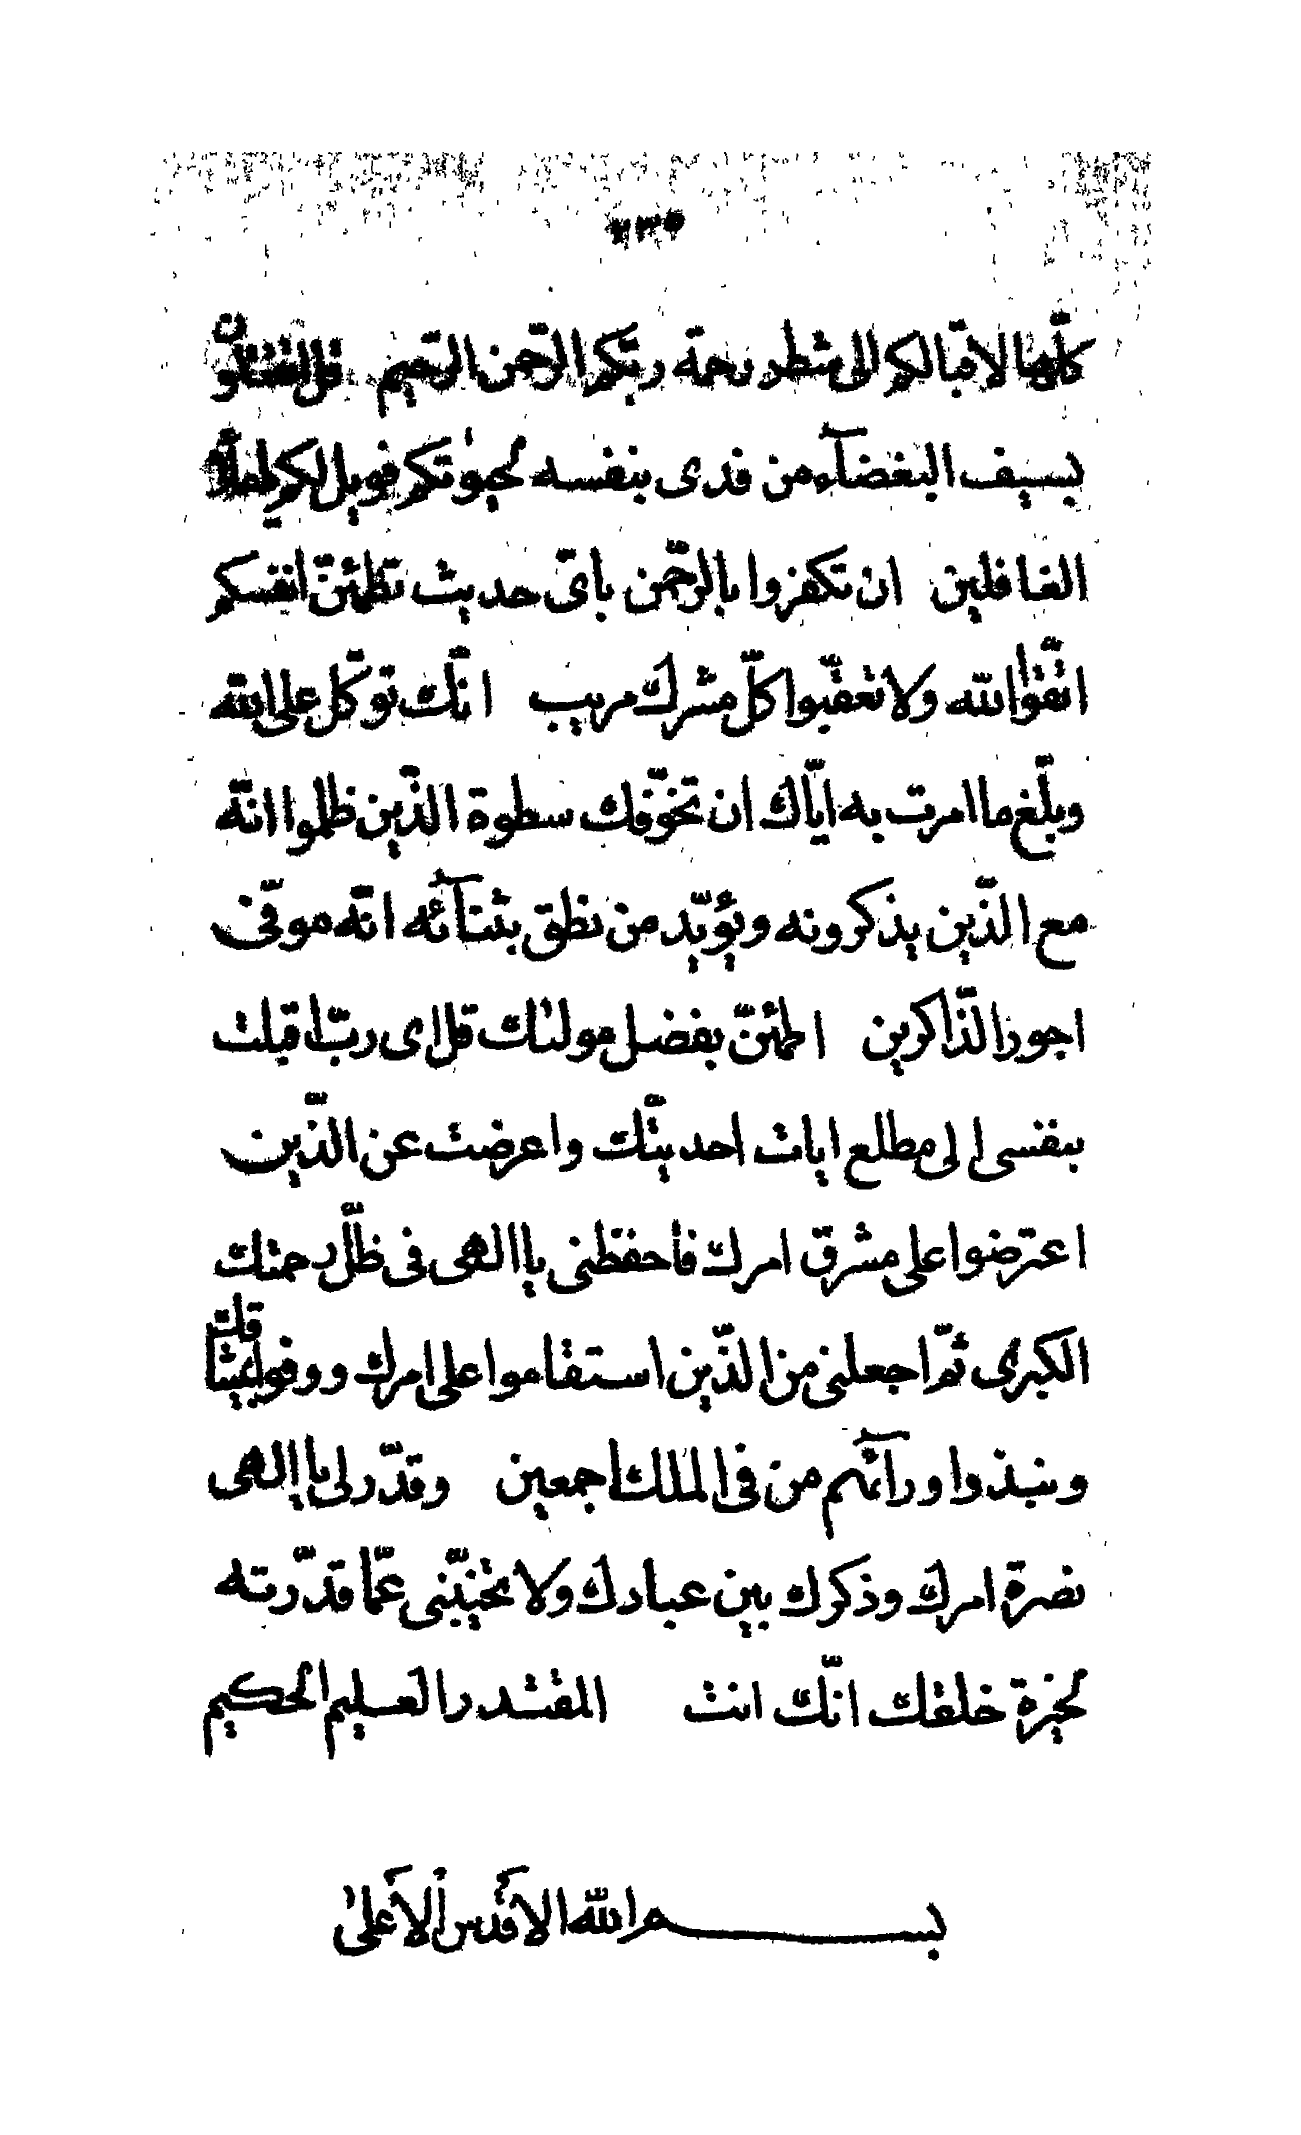 ٢٣٥
كلّها لاقبالكم الى شطر رحمة ربّكم الرّحمن الرّحيم قل اتقتلون
بسيف البغضآء من فدى بنفسه لحيوٰتكم فويل لكم يا ملأ
الغافلين ان تكفروا بالرّحمن باىّ حديث تطمئنّ انفسكم
اتّقوا الله ولا تعقّبوا كلّ مشرك مريب انّك توكّل على الله
وبلّغ ما امرت به ايّاك ان تخوّفك سطوة الذّين ظلموا انّه
مع الذّين يذكرونه ويؤيّد من نطق بثنآئه انّه موفّى
اجور الذّاكرين اطمئنّ بفضل موليٰك قل اى ربّ اقبلت
بنفسى الى مطلع ايات احديّتك واعرضت عن الذّين
اعترضوا على مشرق امرك فاحفظنى يا الهى فى ظلّ رحمتك
الكبرى ثمّ اجعلنى من الذّين استقاموا على امرك ووفوا بميثاقك
ونبذوا ورآئهم من فى الملك اجمعين وقدّر لى يا الهى
نصرة امرك وذكرك بين عبادك ولا تخيّبنى عمّا قدّرته
لخيرة خلقك انّك انت المقتدر العليم الحكيم
بسم الله الاقدس الاعلىٰ